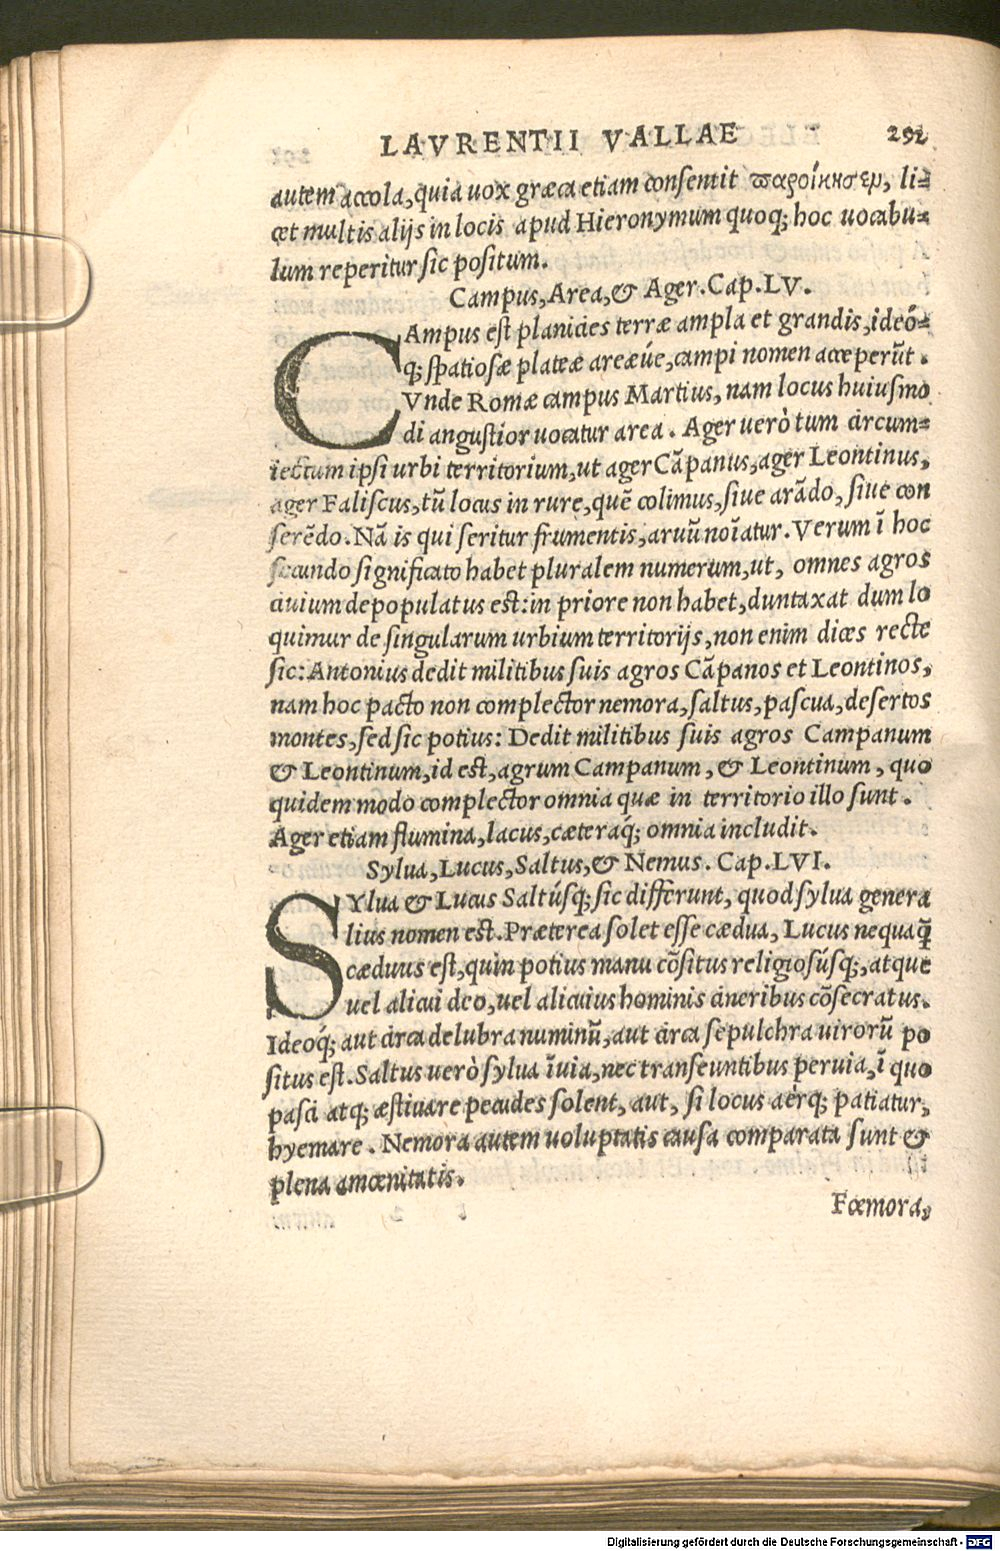 LAVRENTII VALLAE 292
autem accola, quia uox græca etiam consentit παροίκησεν, li-
cet multis alijs in locis apud Hieronymum quoq; hoc uocabu-
lum reperitur sic positum.
Campus, Area, & Ager. Cap. LV.
CAmpus est planicies terræ ampla et grandis, ideó-
q; spatiosæ plateæ areæúe, campi nomen acceperūt.
Vnde Romæ campus Martius, nam locus huiusmo
di angustior uocatur area. Ager uerò tum circum-
iectum ipsi urbi territorium, ut ager Cāpanus, ager Leontinus,
ager Faliscus, tū locus in rure, quē colimus, siue arādo, siue con
serēdo. Nā is qui seritur frumentis, aruū noīatur. Verum ī hoc
secundo significato habet pluralem numerum, ut, omnes agros
ciuium depopulatus est: in priore non habet, duntaxat dum lo
quimur de singularum urbium territorijs, non enim dices recte
sic: Antonius dedit militibus suis agros Cāpanos et Leontinos,
nam hoc pacto non complector nemora, saltus, pascua, desertos
montes, sed sic potius: Dedit militibus suis agros Campanum
& Leontinum, id est, agrum Campanum, & Leontinum, quo
quidem modo complector omnia quæ in territorio illo sunt.
Ager etiam flumina, lacus, cæteraq́; omnia includit.
Sylua, Lucus, Saltus, & Nemus. Cap. LVI.
SYlua & Lucus Saltúsq; sic differunt, quod sylua genera
lius nomen est. Præterea solet esse cædua, Lucus nequaq̄
cæduus est, quin potius manu cōsitus religiosúsq;, atque
uel alicui deo, uel alicuius hominis cineribus cōsecratus.
Ideoq́; aut circa delubra numinū, aut circa sepulchra uirorū po
situs est. Saltus uerò sylua īuia, nec transeuntibus peruia, ī quo
pasci atq; æstiuare pecudes solent, aut, si locus aërq; patiatur,
hyemare. Nemora autem uoluptatis causa comparata sunt &
plena amœnitatis.
Fœmora,
Digitalisierung gefördert durch die Deutsche Forschungsgemeinschaft - DFG